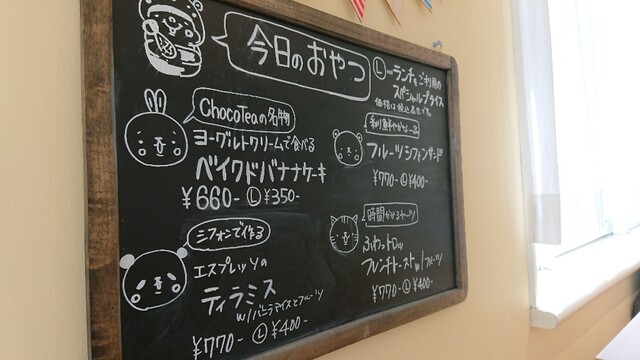 今日のおやつ
Ⓛ…ランチをご利用の
スペシャルプライス
価格は税込表示です。
ChocoTeaの名物
ヨーグルトクリームで食べる
ベイクドバナナケーキ
¥660- Ⓛ¥350-
シフォンで作る
エスプレッソの
ティラミス
w/バニラアイスとフルーツ
¥770- Ⓛ¥400-
彩り鮮やかな一品
フルーツシフォンサンド
¥770- Ⓛ¥400-
時間かかるヤーツ
ふわっトロッ
フレンチトーストw/フルーツ
¥770- Ⓛ¥400-